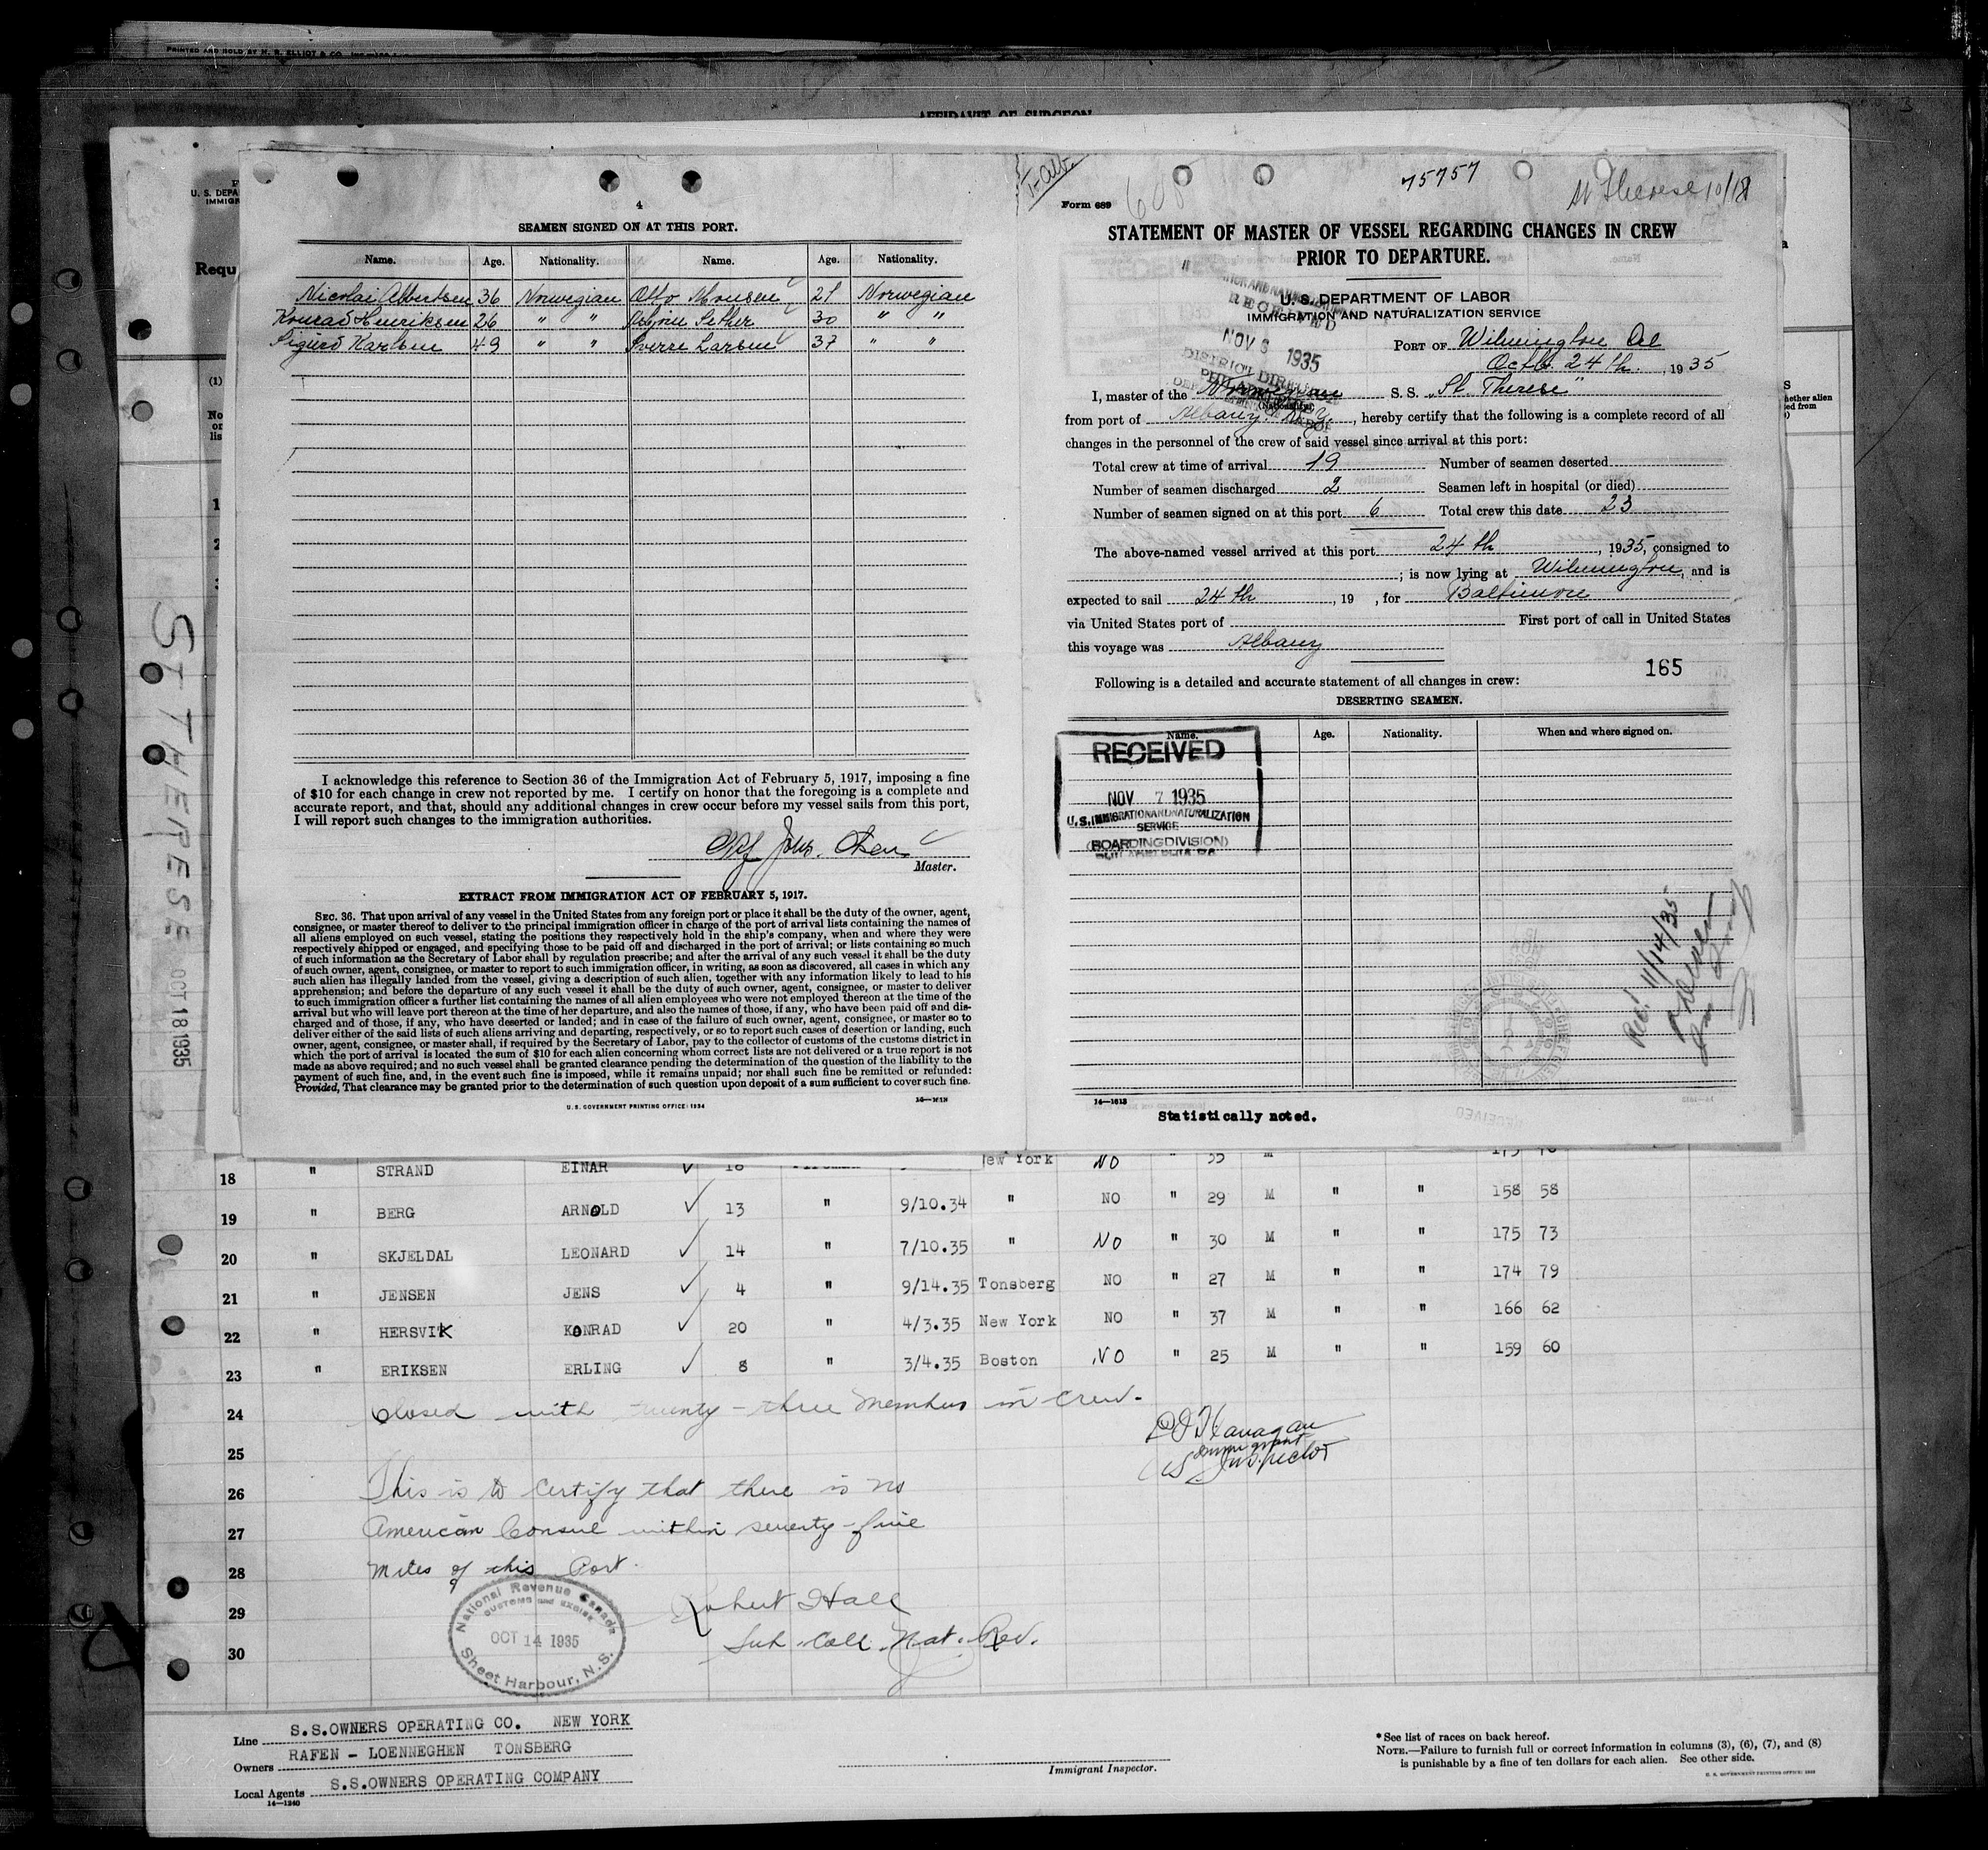 PRINTED AND SOLD BY H. S. ELLIOT & CO.
AFFIDAVIT OF SURGEON
U. S. DEPA
IMMIGR
Requ
(1)
No
on
lis
ST THERESE OCT 18 1935
4
SEAMEN SIGNED ON AT THIS PORT.
Name. Age. Nationality. Name. Age. Nationality.
Nicolai Albertsen 36 Norwegian Otto Monsen 21 Norwegian
Konrad Henriksen 26 " " Sether 30 " "
Sigurd Karlsen 49 " " Sverre Larsen 37 " "
I acknowledge this reference to Section 36 of the Immigration Act of February 5, 1917, imposing a fine
of $10 for each change in crew not reported by me. I certify on honor that the foregoing is a complete and
accurate report, and that, should any additional changes in crew occur before my vessel sails from this port,
I will report such changes to the immigration authorities.
Olsen
Master.
EXTRACT FROM IMMIGRATION ACT OF FEBRUARY 5, 1917.
SEC. 36. That upon arrival of any vessel in the United States from any foreign port or place it shall be the duty of the owner, agent,
consignee, or master thereof to deliver to the principal immigration officer in charge of the port of arrival lists containing the names of
all aliens employed on such vessel, stating the positions they respectively hold in the ship's company, when and where they were
respectively shipped or engaged, and specifying those to be paid off and discharged in the port of arrival; or lists containing so much
of such information as the Secretary of Labor shall by regulation prescribe; and after the arrival of any such vessel it shall be the duty
of such owner, agent, consignee, or master to report to such immigration officer, in writing, as soon as discovered, all cases in which any
such alien has illegally landed from the vessel, giving a description of such alien, together with any information likely to lead to his
apprehension; and before the departure of any such vessel it shall be the duty of such owner, agent, consignee, or master to deliver
to such immigration officer a further list containing the names of all alien employees who were not employed thereon at the time of the
arrival but who will leave port thereon at the time of her departure, and also the names of those, if any, who have been paid off and dis-
charged and of those, if any, who have deserted or landed; and in case of the failure of such owner, agent, consignee, or master so to
deliver either of the said lists of such aliens arriving and departing, respectively, or so to report such cases of desertion or landing, such
owner, agent, consignee, or master shall, if required by the Secretary of Labor, pay to the collector of customs of the customs district in
which the port of arrival is located the sum of $10 for each alien concerning whom correct lists are not delivered or a true report is not
made as above required; and no such vessel shall be granted clearance pending the determination of the question of the liability to the
payment of such fine, and, in the event such fine is imposed, while it remains unpaid; nor shall such fine be remitted or refunded:
Provided, That clearance may be granted prior to the determination of such question upon deposit of a sum sufficient to cover such fine.
U. S. GOVERNMENT PRINTING OFFICE: 1934
Form 689
75757
St Therese 10/18
STATEMENT OF MASTER OF VESSEL REGARDING CHANGES IN CREW
PRIOR TO DEPARTURE.
U. S. DEPARTMENT OF LABOR
IMMIGRATION AND NATURALIZATION SERVICE
RECEIVED
NOV 8 1935
DISTRICT DIRECTOR
PORT OF Wilmington Del
Octb. 24 th. , 1935
I, master of the Norwegian S. S. "St. Therese"
(Nationality)
from port of Albany N.Y. , hereby certify that the following is a complete record of all
changes in the personnel of the crew of said vessel since arrival at this port:
Total crew at time of arrival 19 Number of seamen deserted
Number of seamen discharged 2 Seamen left in hospital (or died)
Number of seamen signed on at this port 6 Total crew this date 23
The above-named vessel arrived at this port 24 th , 1935, consigned to
; is now lying at Wilmington, and is
expected to sail 24 th , 19 , for Baltimore
via United States port of First port of call in United States
this voyage was Albany
165
Following is a detailed and accurate statement of all changes in crew:
DESERTING SEAMEN.
Name. Age. Nationality. When and where signed on.
RECEIVED
NOV 7 1935
U.S. IMMIGRATION AND NATURALIZATION
SERVICE
(BOARDING DIVISION)
Rec'd 11/14/35
14—1613
Statistically noted.
18 " STRAND EINAR 16 New York NO " 35 M 175 70
19 " BERG ARNOLD 13 " 9/10.34 " NO " 29 M " " 158 58
20 " SKJELDAL LEONARD 14 " 7/10.35 " NO " 30 M " " 175 73
21 " JENSEN JENS 4 " 9/14.35 Tonsberg NO " 27 M " " 174 79
22 " HERSVIK KONRAD 20 " 4/3.35 New York NO " 37 M " " 166 62
23 " ERIKSEN ERLING 8 " 3/4.35 Boston NO " 25 M " " 159 60
24 Closed with twenty-three members in crew.
P J Flanagan
Immigrant
US Inspector
25
26 This is to Certify that there is no
27 American Consul within seventy-five
28 miles of this Port.
29 Robert Hall
30 Sub. Coll. Nat. Rev.
National Revenue Canada
CUSTOMS and EXCISE
OCT 14 1935
Sheet Harbour, N.S.
Line S.S.OWNERS OPERATING CO. NEW YORK
Owners RAFEN - LOENNEGHEN TONSBERG
Local Agents S.S.OWNERS OPERATING COMPANY
14—1240
Immigrant Inspector.
* See list of races on back hereof.
NOTE.—Failure to furnish full or correct information in columns (3), (6), (7), and (8)
is punishable by a fine of ten dollars for each alien. See other side.
U. S. GOVERNMENT PRINTING OFFICE: 1933